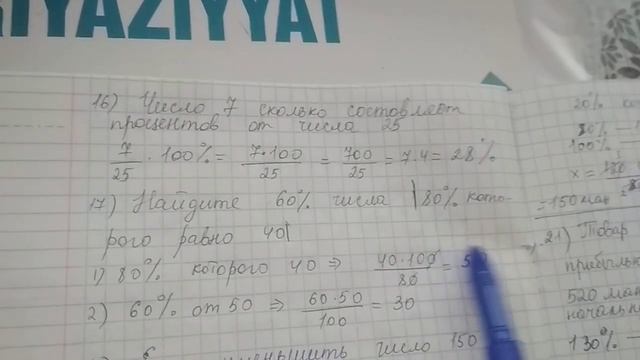 RIYAZIYYAT
16) Число 7 сколько составляет
процентов от числа 25
7/25 · 100% = 7·100/25 = 700/25 = 7·4 = 28%
17) Найдите 60% числа |80% кото-
рого равно 40|
1) 80% которого 40 ⇒ 40·100/80 = 5
2) 60% от 50 ⇒ 60·50/100 = 30
уменьшить число 150
20%
80% —
100% —
x =
= 150 ман
21) Товар
прибылью
520 ман
начальн
130% —